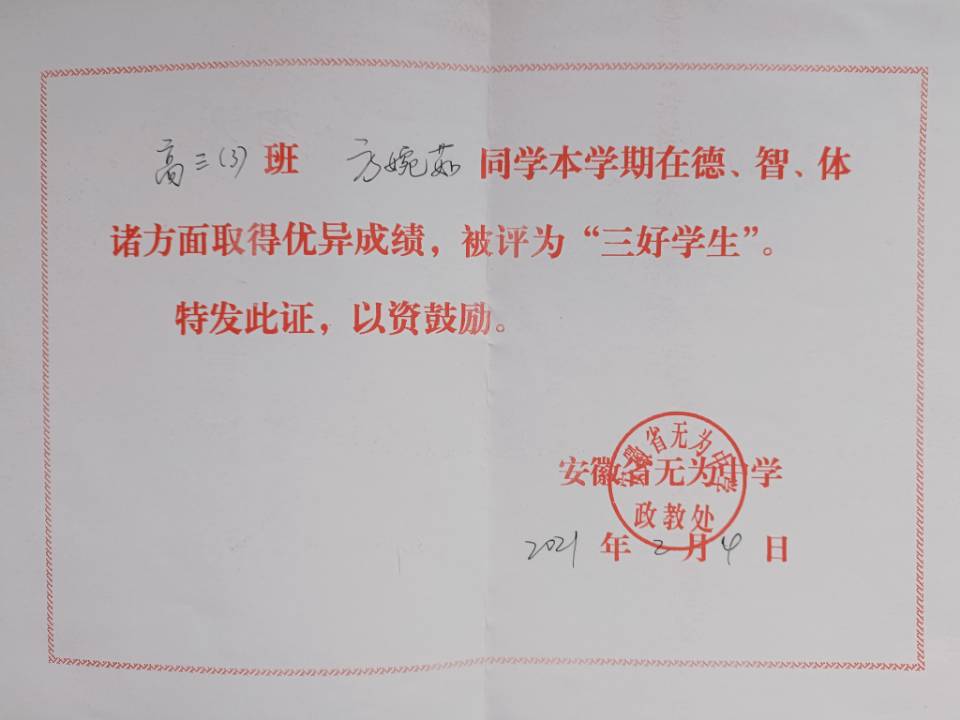 高三(3)班 方婉茹 同学本学期在德、智、体
诸方面取得优异成绩，被评为“三好学生”。
特发此证，以资鼓励。
安徽省无为中学
安徽省无为中学
政教处
2021年2月4日